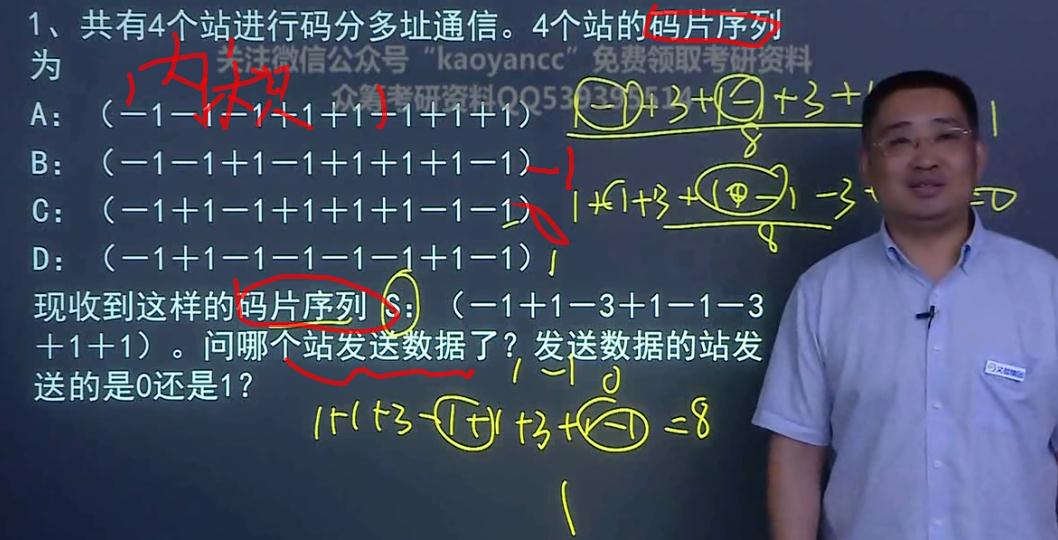 1、共有4个站进行码分多址通信。4个站的码片序列
关注微信公众号“kaoyancc”免费领取考研资料
为
内积
众筹考研资料QQ539395514
A：（－1－1－1＋1＋1－1＋1＋1）
－1＋3＋1－1＋3＋1
8
1
B：（－1－1＋1－1＋1＋1＋1－1）－1
C：（－1＋1－1＋1＋1＋1－1－1）0
1＋1＋3＋1
－1－3
＝0
8
D：（－1＋1－1－1－1－1＋1－1）1
现收到这样的码片序列 S：（－1＋1－3＋1－1－3
＋1＋1）。问哪个站发送数据了？发送数据的站发
送的是0还是1？
1 －1 0
1＋1＋3－1＋1＋3＋1－1＝8
1